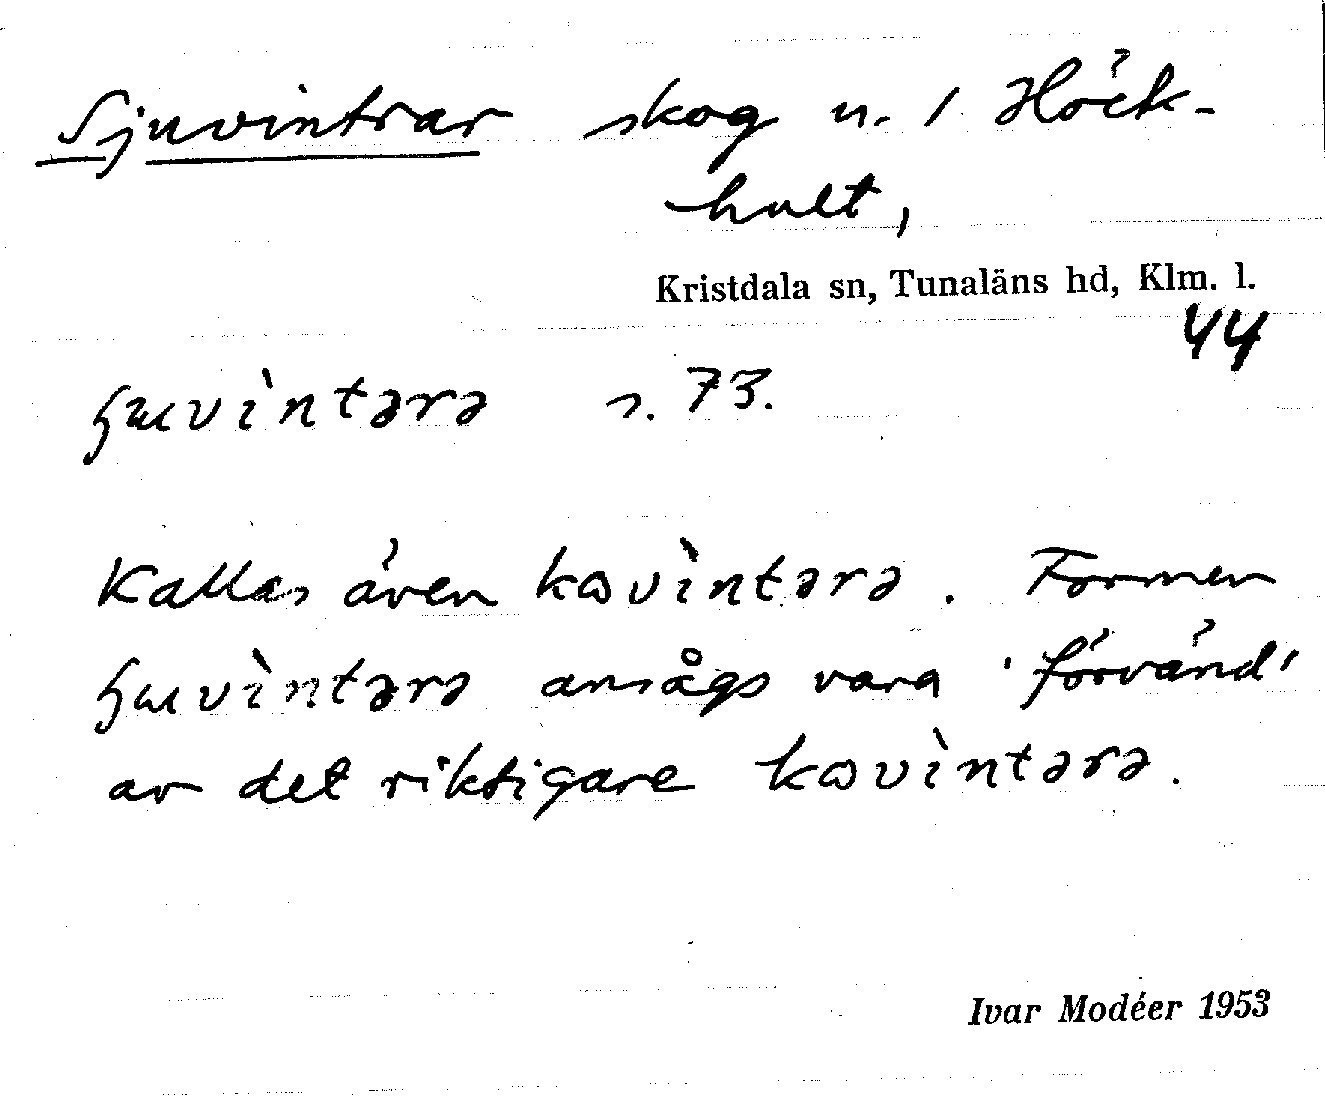 Sjuvintrar skog u. / Höck-
hult,
Kristdala sn, Tunaläns hd, Klm. l.
44
ɧɯvìntərə s. 73.
Kallas även kɷvìntərə. Formen
ɧɯvìntərə ansågs vara 'förvänd'
av det riktigare kɷvìntərə.
Ivar Modéer 1953